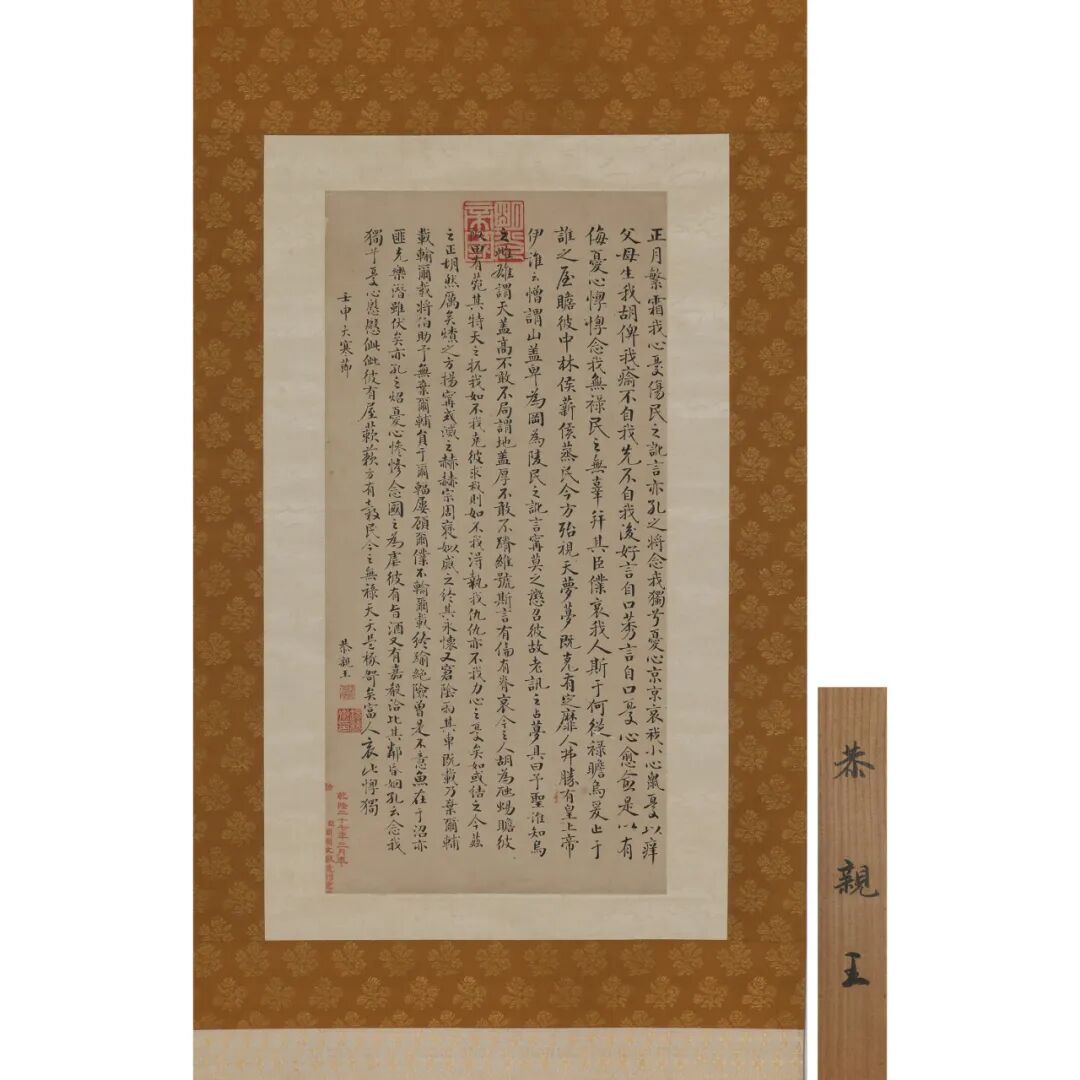 正月繁霜我心憂傷民之訛言亦孔之將念我獨兮憂心京京哀我小心癙憂以痒
父母生我胡俾我瘉不自我先不自我後好言自口莠言自口憂心愈愈是以有
侮憂心惸惸念我無祿民之無辜并其臣僕哀我人斯于何從祿瞻烏爰止于
誰之屋瞻彼中林侯薪侯蒸民今方殆視天夢夢既克有定靡人弗勝有皇上帝
伊誰云憎謂山蓋卑為岡為陵民之訛言寧莫之懲召彼故老訊之占夢具曰予聖誰知烏
之雌雄謂天蓋高不敢不局謂地蓋厚不敢不蹐維號斯言有倫有脊哀今之人胡為虺蜴瞻彼
阪田有菀其特天之抗我如不我克彼求我則如不我得執我仇仇亦不我力心之憂矣如或結之今茲
之正胡然厲矣燎之方揚寧或滅之赫赫宗周褒姒威之終其永懷又窘陰雨其車既載乃棄爾輔
載輸爾載將伯助予無棄爾輔員于爾輻屢顧爾僕不輸爾載終踰絕險曾是不意魚在于沼亦
匪克樂潛雖伏矣亦孔之炤憂心慘慘念國之為虐彼有旨酒又有嘉殽洽比其鄰昏姻孔云念我
獨兮憂心慇慇佌佌彼有屋蔌蔌方有穀民今之無祿天夭是椓哿矣富人哀此惸獨
壬申大寒節 恭親王
乾隆三十七年三月奉
恭親王